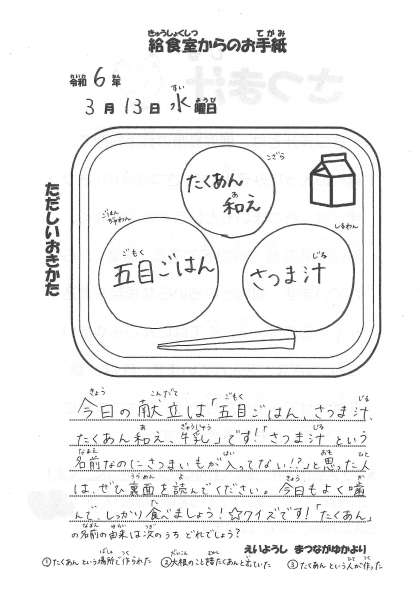 給食室からのお手紙
令和6年
3月13日水曜日
ただしいおきかた
こざら
たくあん
和え
ごはんぢゃわん
五目ごはん
しるわん
さつま汁
今日の献立は「五目ごはん、さつま汁、
たくあん和え、牛乳」です!「さつま汁という
名前なのにさつまいもが入ってない!?」と思った人
は、ぜひ裏面を読んでください。今日もよく噛
んで、しっかり食べましょう!☆クイズです!「たくあん」
の名前の由来は次のうちどれでしょう?
えいようし まつながゆかより
①たくあんという場所で作られた ②大根のこと昔たくあんと言っていた ③たくあんという人が作った